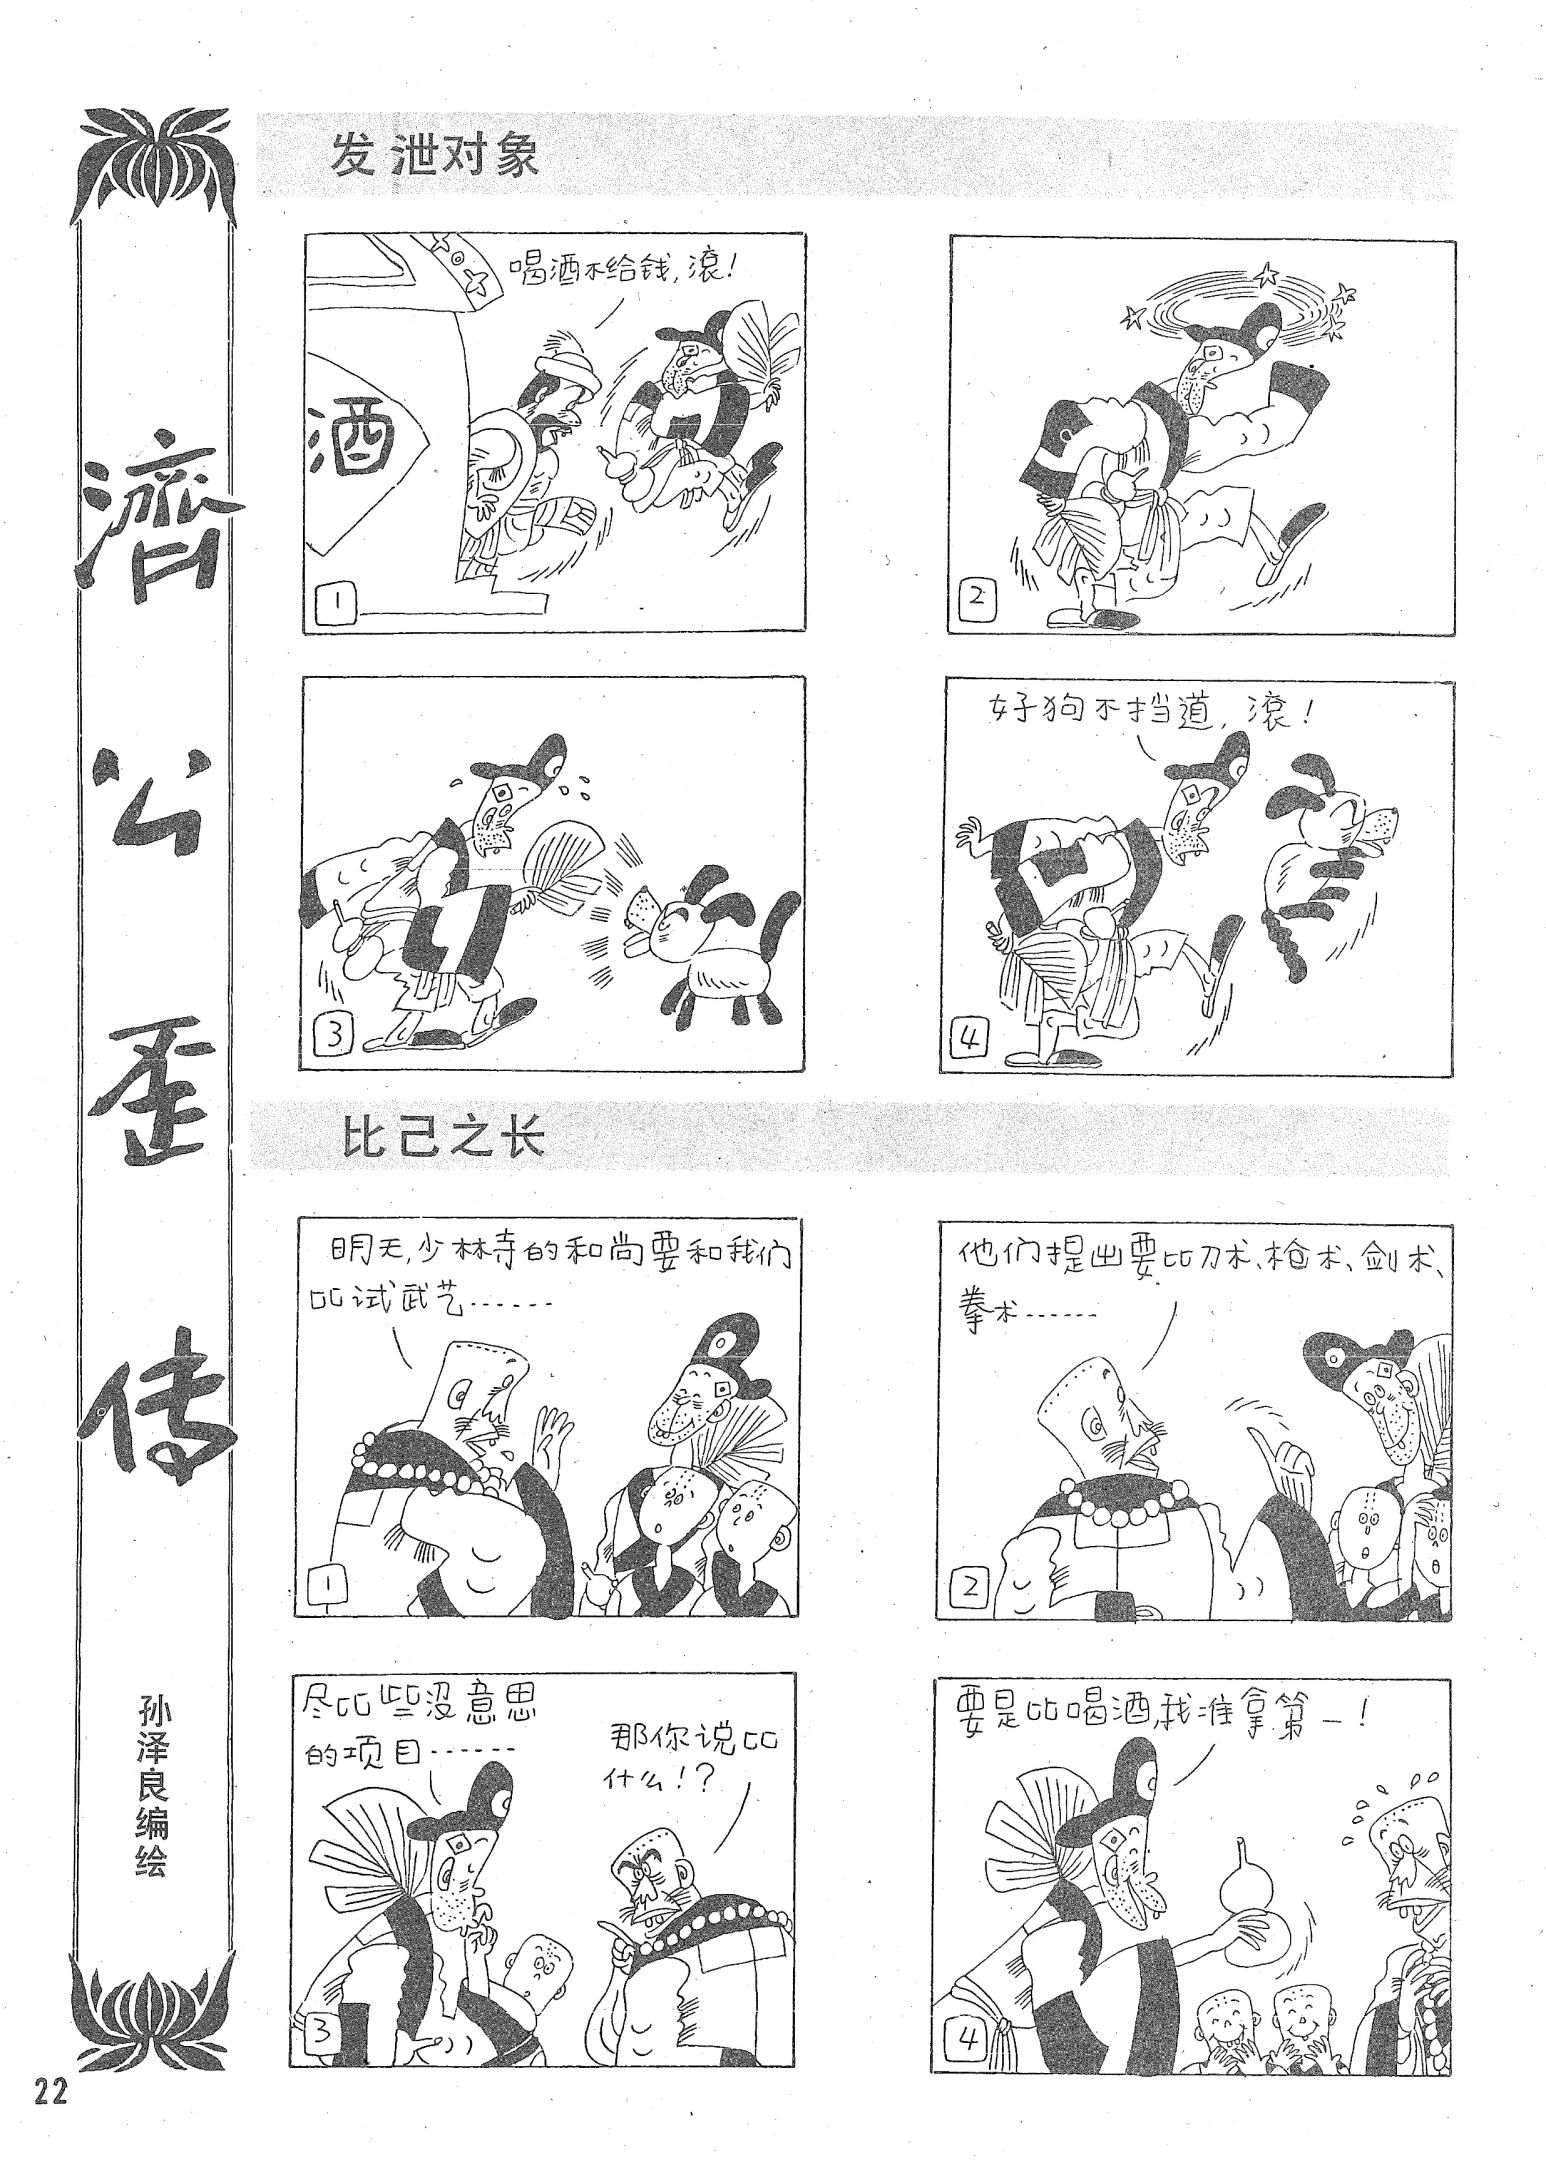 濟公歪传
孙泽良编绘
发泄对象
喝酒不给钱,滚!
酒
1
2
3
好狗不挡道,滚!
4
比己之长
明天,少林寺的和尚要和我们
比试武艺……
1
他们提出要比刀术、枪术、剑术、
拳术……
2
尽比些没意思
的项目……
那你说比
什么!?
3
要是比喝酒,我准拿第一!
4
22